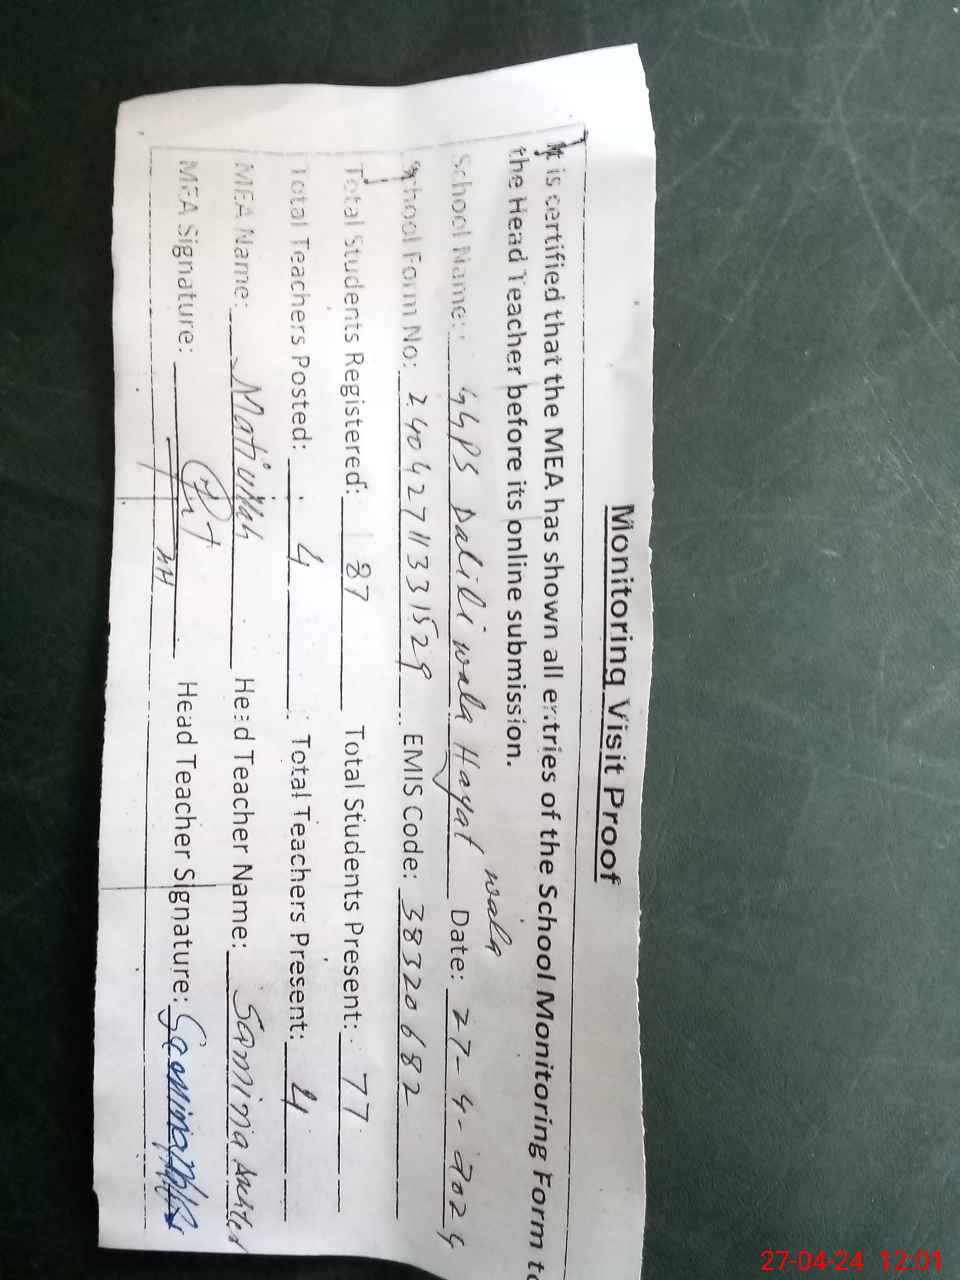 Monitoring Visit Proof
It is certified that the MEA has shown all entries of the School Monitoring Form to
the Head Teacher before its online submission.
wala
School Name: GGPS Daliliwala Hayat Date: 27-4-2024
School Form No: 24042711331529 EMIS Code: 38320682
Total Students Registered: 87 Total Students Present: 77
Total Teachers Posted: 4 Total Teachers Present: 4
MEA Name: Matiullah Head Teacher Name: Samina Aachter
MEA Signature: Head Teacher Signature:
27-04-24 12:01